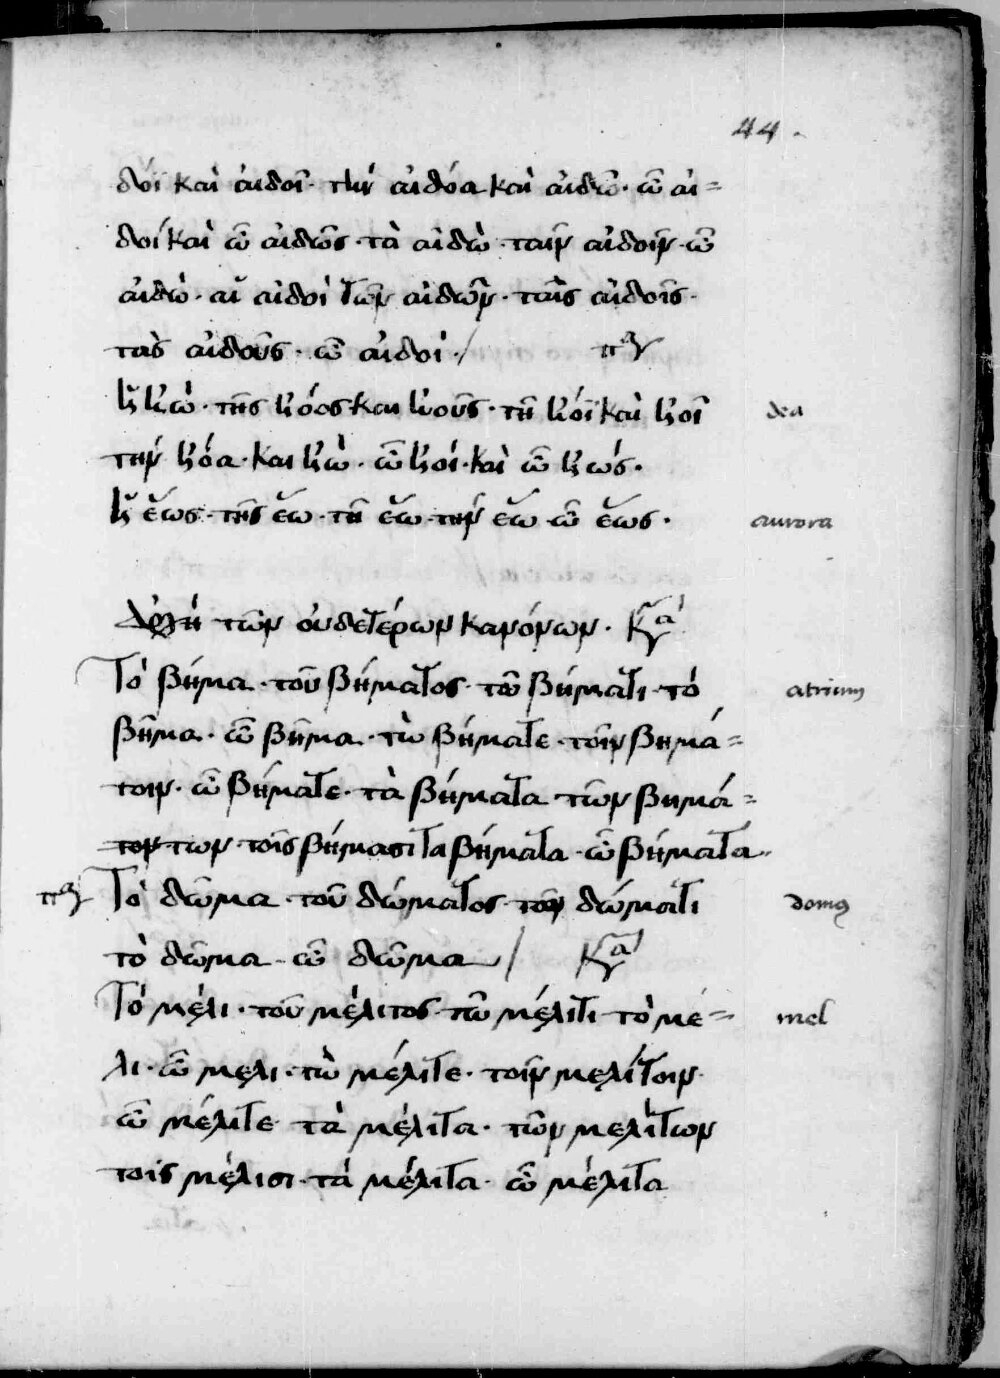 44.
δόϊ καὶ αἰδοῖ· τὴν αἰδόα καὶ αἰδῶ· ὦ αἰ=
δοί καὶ ὦ αἰδῶς· τὰ αἰδὼ· ταῖν αἰδοῖν· ὦ
αἰδὼ· αἱ αἰδοὶ τῶν αἰδῶν· ταῖς αἰδοῖς·
τὰς αἰδοῦς· ὦ αἰδοί·/
ἡ ἡὼ· τῆς ἡόος και ἡοῦς· τῆ ἡόϊ καὶ ἡοῖ dea
τὴν ἡόα· και ἡὼ· ὦ ἡοί· καὶ ὦ ἡώς·
ἡ ἕως· τῆς ἕω· τῆ ἕω· τὴν ἕω· ὦ ἕως· aurora
Ἀρχὴ τῶν οὐδετέρων κανόνων·
Τὸ βῆμα· τοῦ βήματος· τῶ βήματι· τὸ atrium
βῆμα· ὦ βῆμα· τὼ βήματε· τοῖν βημά=
τοιν· ὦ βήματε· τὰ βήματα· τῶν βημά=
των τοῖς βήμασι τὰ βήματα· ὦ βήματα··
Τὸ δῶμα· τοῦ δώματος· τῶ δώματι domus
τὸ δῶμα· ὦ δῶμα /
Τὸ μέλι· τοῦ μέλιτος· τῶ μέλιτι τὸ μέ= mel
λι· ὦ μελι· τὼ μέλιτε· τοῖν μελίτοιν·
ὦ μέλιτε· τὰ μέλιτα· τῶν μελίτων
τοῖς μέλισι· τὰ μέλιτα· ὦ μέλιτα